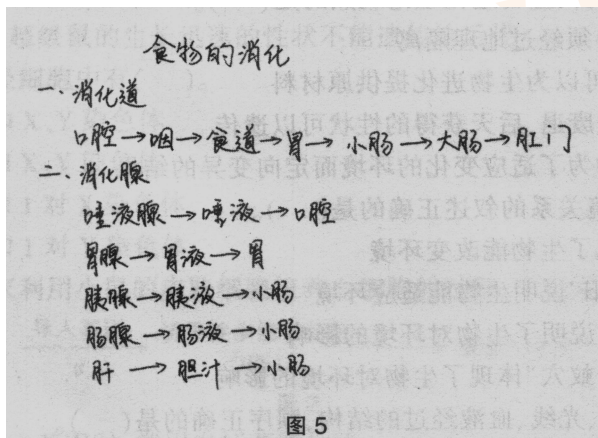 食物的消化
一、消化道
口腔→咽→食道→胃→小肠→大肠→肛门
二、消化腺
唾液腺→唾液→口腔
胃腺→胃液→胃
胰腺→胰液→小肠
肠腺→肠液→小肠
肝→胆汁→小肠
图5